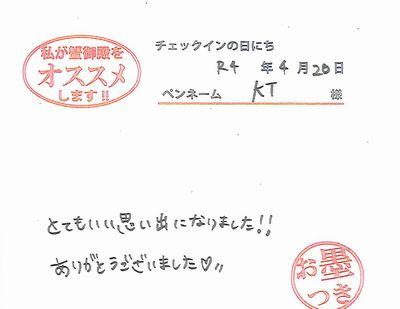 私が蟹御殿を
オススメ
します!!
チェックインの日にち
R4 年 4 月 20 日
ペンネーム KT 様
とてもいい思い出になりました!!
ありがとうございました♡!!
お墨
つき